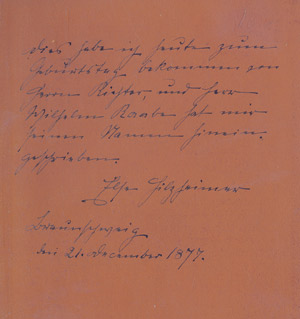 Dies habe ich heute zum
Geburtstag bekommen von
Herrn Richter, und Herr
Wilhelm Raabe hat mir
seinen Namen hinein-
geschrieben.
Else Hilzheimer
Braunschweig
den 21. December 1877.